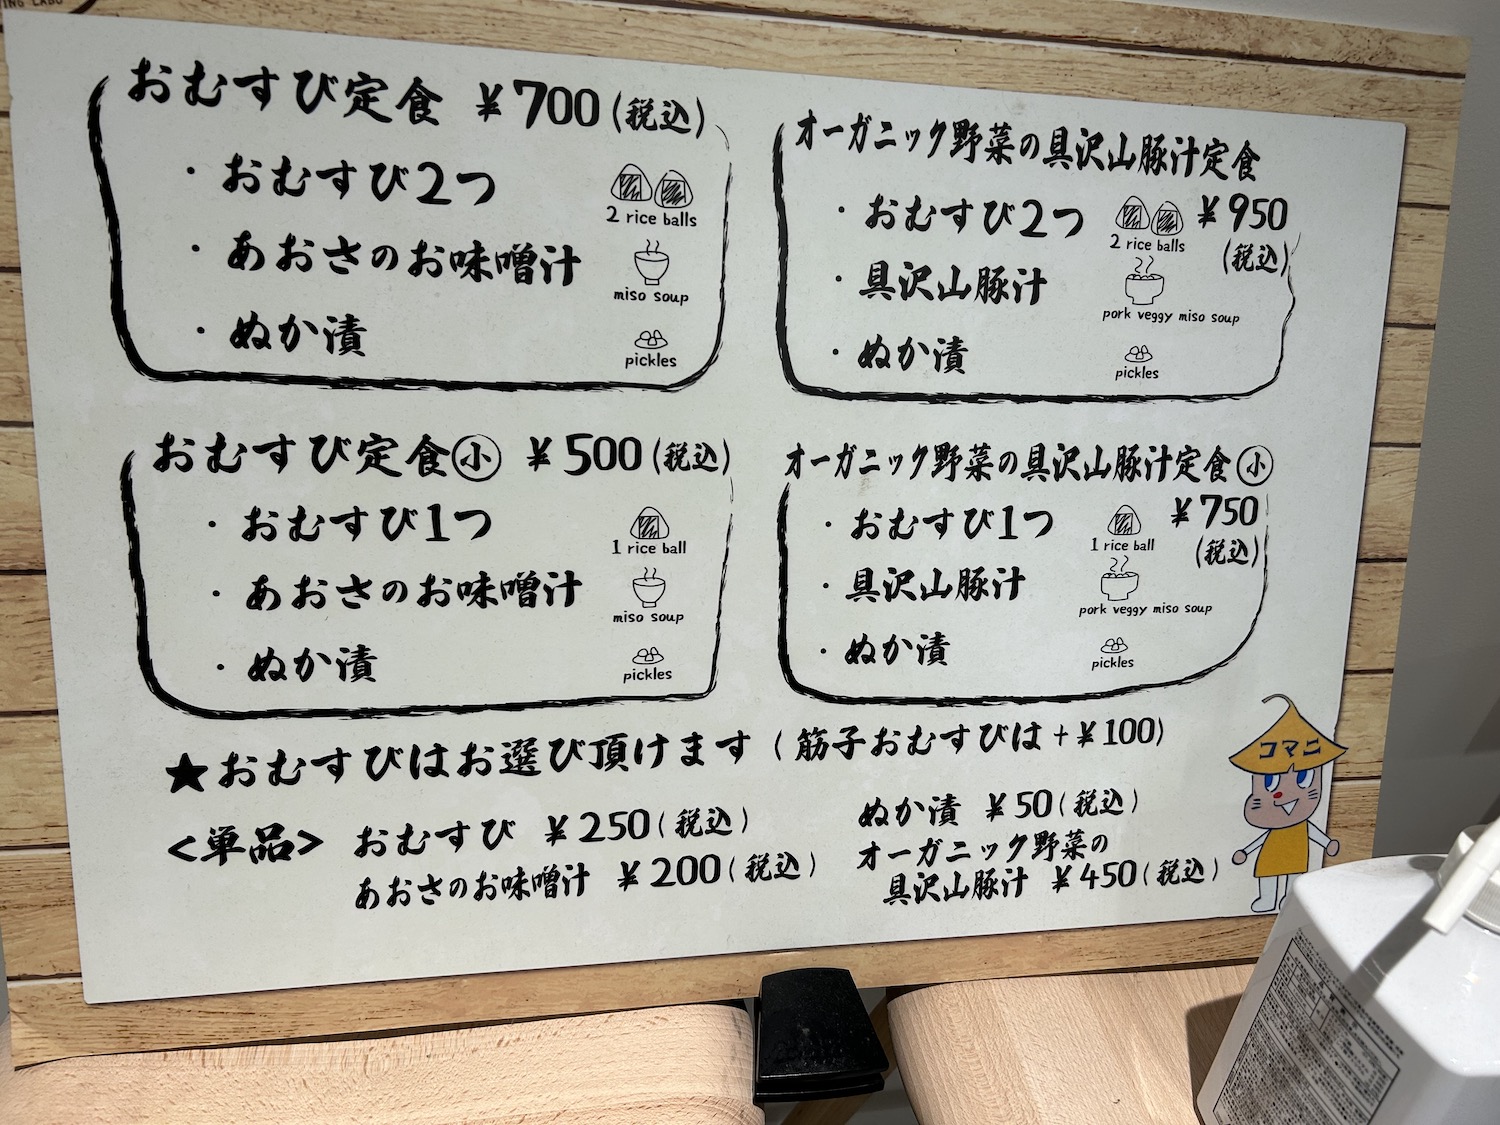 おむすび定食 ¥700(税込)
・おむすび2つ
2 rice balls
・あおさのお味噌汁
miso soup
・ぬか漬
pickles
オーガニック野菜の具沢山豚汁定食
¥950
(税込)
・おむすび2つ
2 rice balls
・具沢山豚汁
pork veggy miso soup
・ぬか漬
pickles
おむすび定食㊥ ¥500(税込)
・おむすび1つ
1 rice ball
・あおさのお味噌汁
miso soup
・ぬか漬
pickles
オーガニック野菜の具沢山豚汁定食小
¥750
(税込)
・おむすび1つ
1 rice ball
・具沢山豚汁
pork veggy miso soup
・ぬか漬
pickles
★おむすびはお選び頂けます(筋子おむすびは+¥100)
<単品> おむすび ¥250(税込)
あおさのお味噌汁 ¥200(税込)
ぬか漬 ¥50(税込)
オーガニック野菜の
具沢山豚汁 ¥450(税込)
コマニ